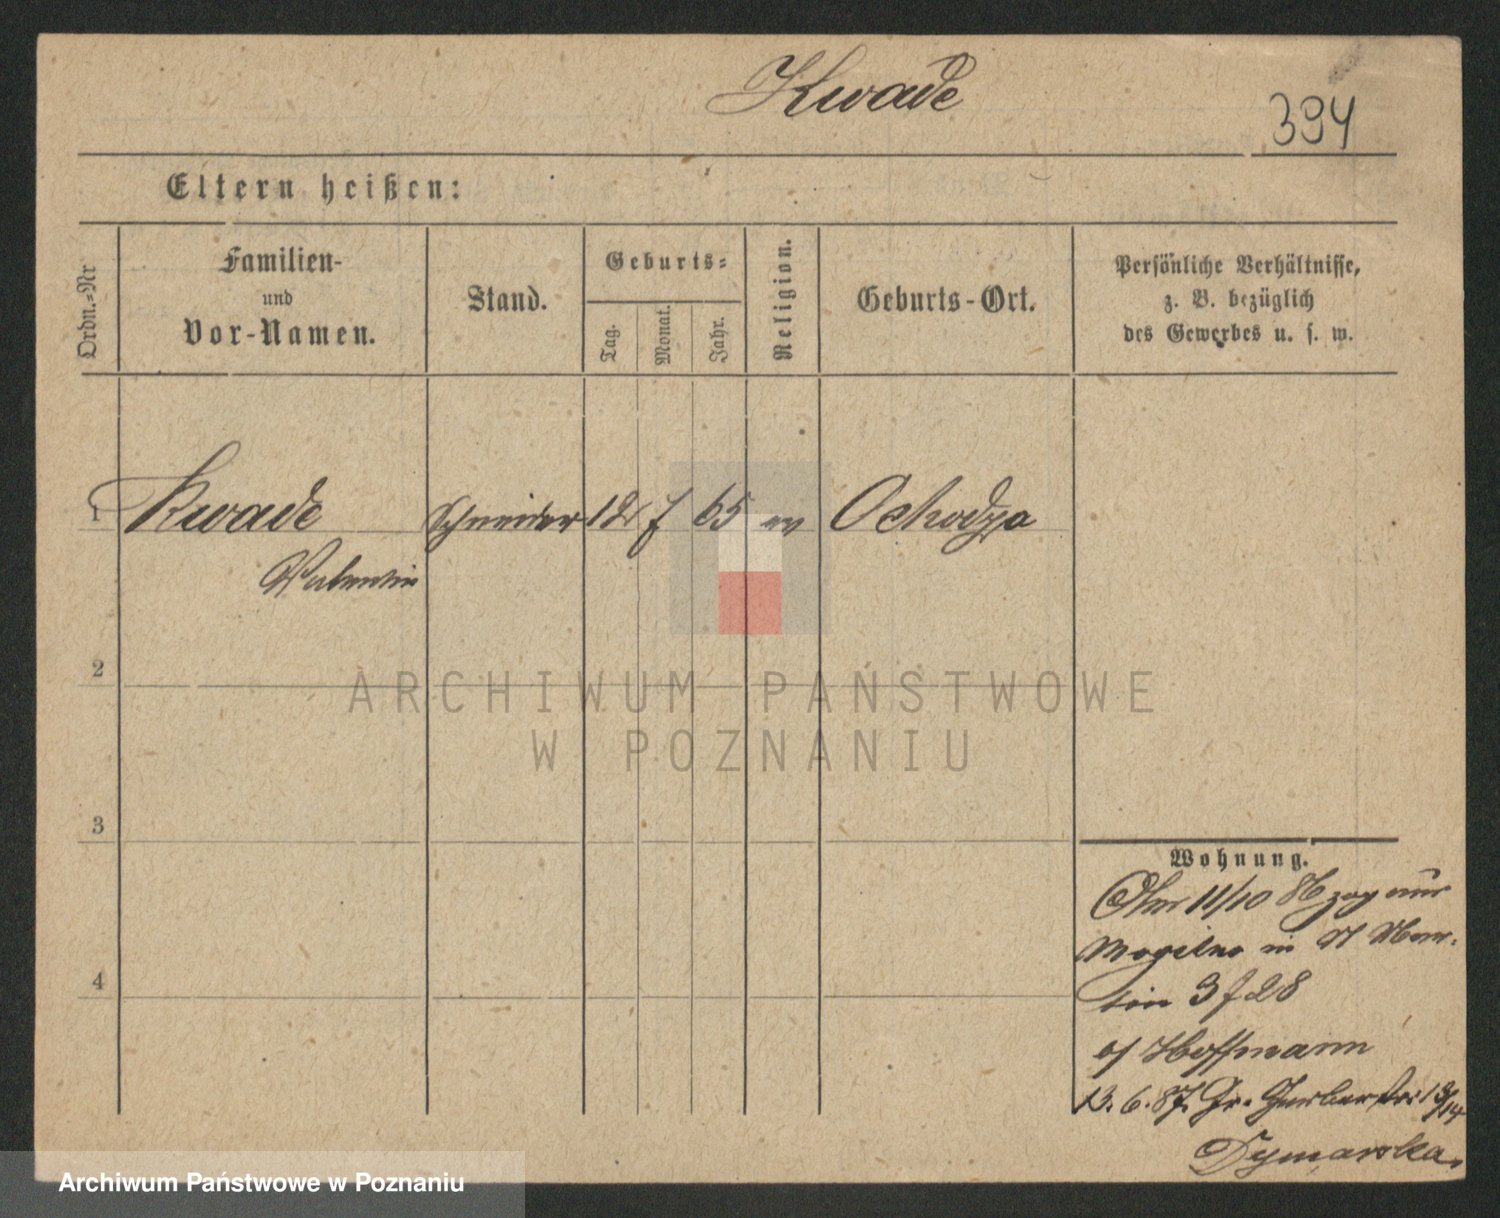 Kwade
394
Eltern heißen:
Ordn.-Nr
Familien-
und
Vor-Namen.
Stand.
Geburts-
Tag.
Monat.
Jahr.
Religion.
Geburts-Ort.
Persönliche Verhältnisse,
z. B. bezüglich
des Gewerbes u. s. w.
1
Kwade
Valentin
Schneider
12
7
65
Ochodza
2
3
4
ARCHIWUM PAŃSTWOWE
W POZNANIU
Wohnung.
11/10 86 zog
Mogilno in
3 28
Hoffmann
13. 6. 87. Gr. Gerberstr. 13/14
Dymarska.
Archiwum Państwowe w Poznaniu